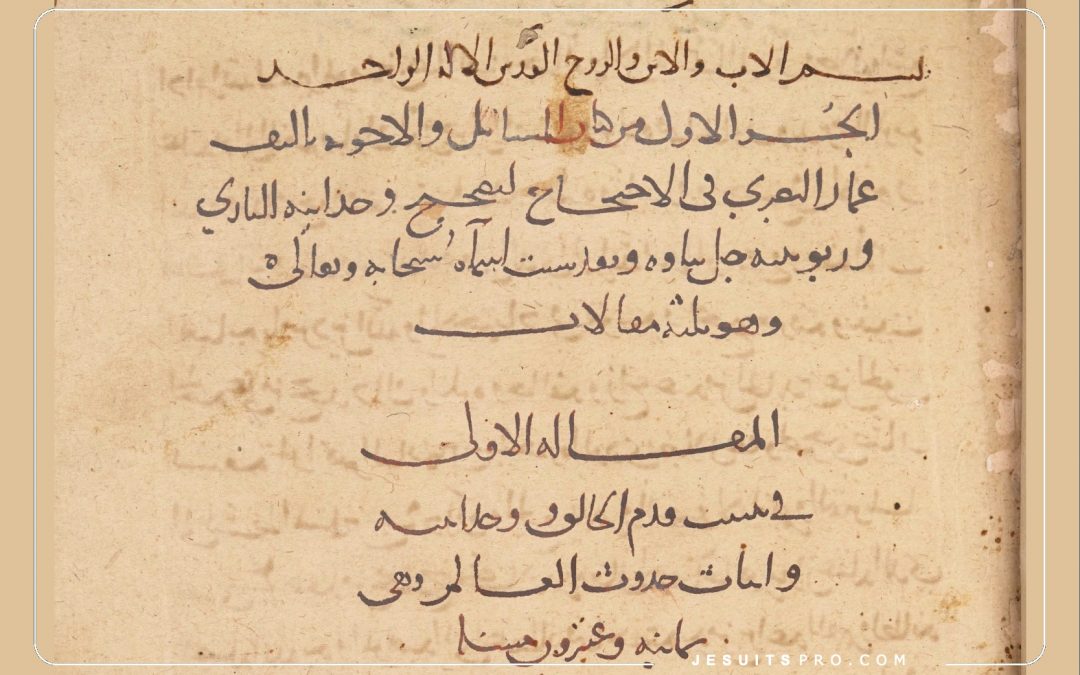 بسم الاب والابن والروح القدس الاله الواحد
الجزو الاول من كتاب المسائل والاجوبه تاليف
عمار البصري في الاحتجاج لتصحيح وحدانيه الباري
وربوبيته جل ثناوه وتقدست اسماه سبحانه وتعالى
وهو ثلثه مقالات
المقاله الاولى
في تثبيت قدم الخالق ووحدانيته
واثبات حدوث العالم وهي
ثمانيه وعشرون مسله
JESUITSPRO.COM